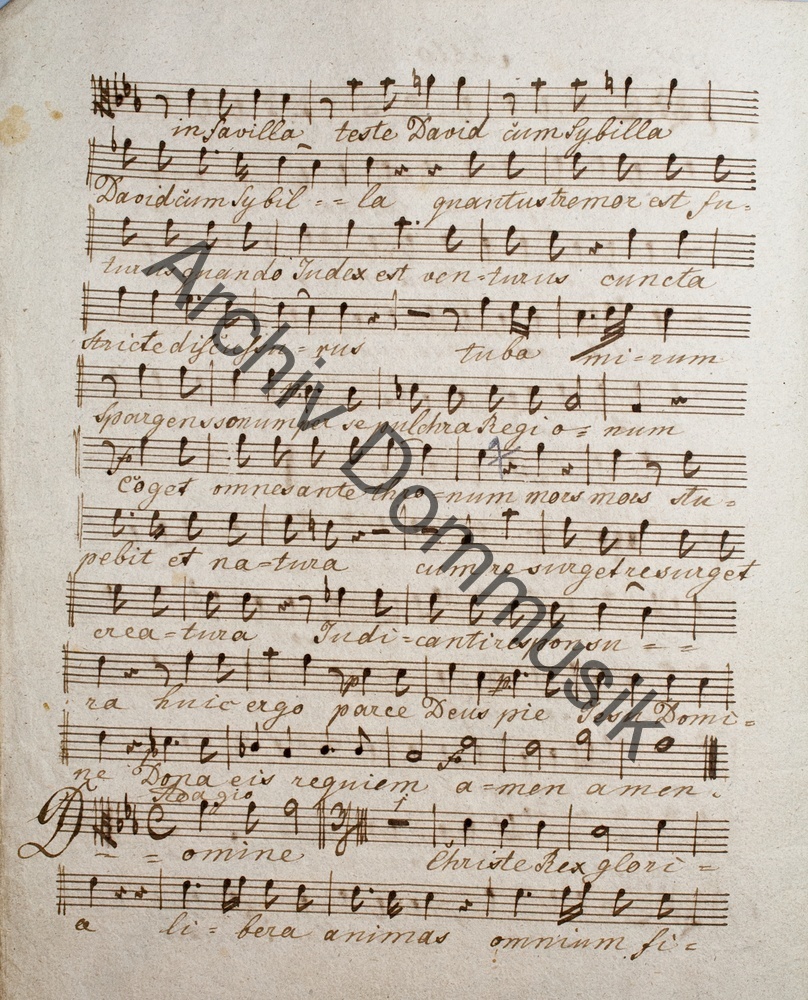 in favilla teste David cum Sybilla
David cum Sybil - - la quantus tremor est fu -
turus quando Iudex est ven - turus cuncta
stricte discussu - rus tuba mi - rum
Spargens sonum per sepulchra Regi o - num
Coget omnes ante thro - num mors mors stu -
pebit et na - tura cum re surget resurget
crea - tura Iudi - canti responsu - -
ra huic ergo parce Deus pie Iesu Domi -
ne Dona eis requiem a - men amen.
Adagio
D - - omine Christe Rex glori -
a li - bera animas omnium fi -
Archiv Dommusik